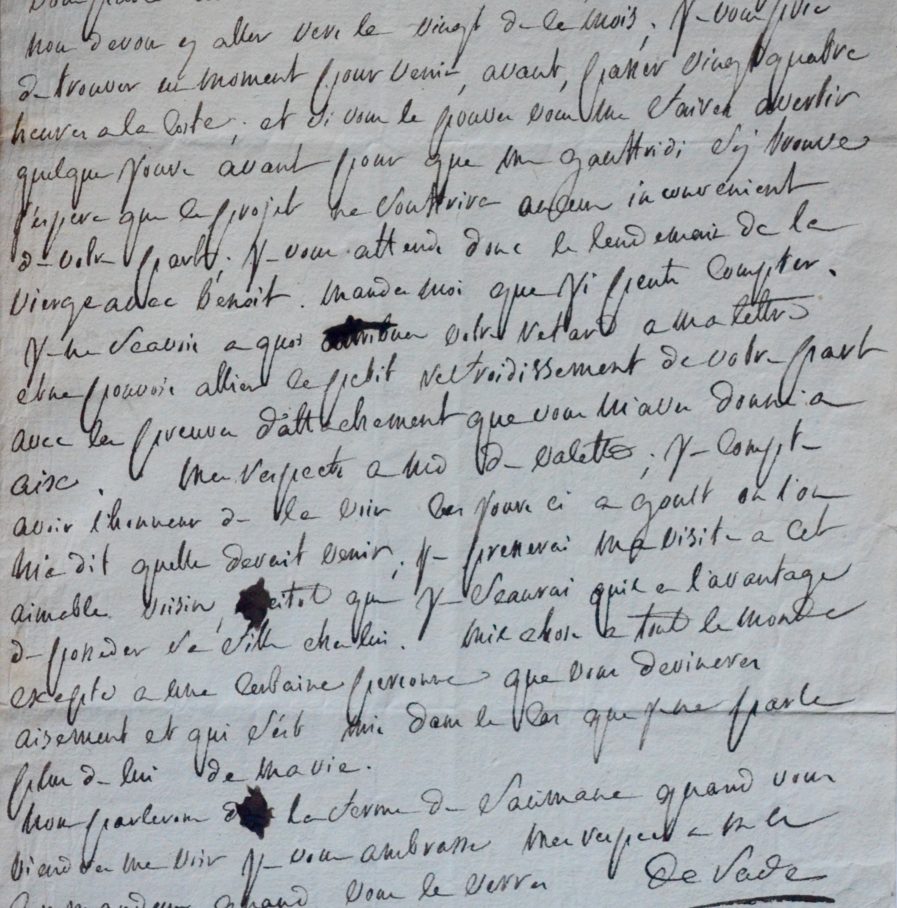 nous devons y aller vers le vingt de le mois, je vous prie
de trouver un moment pour venir, avant, passer vingt quatre
heures a la Coste, et si vous le pouvez vous me faires avertir
quelque jours avant pour que me gauffridi s'y trouve
j'espere que le projet ne souffrira aucun inconvenient
de votre part, je vous attends donc le lendemain de la
vierge avec benoit. mandez moi que j'i peut compter.
je ne scavois a quoi attribuer votre retard a ma lettre
et ne pouvois allier le petit refroidissement de votre part
avec les preuves d'attachement que vous m'aves donné a
aix. mes respects a md de valette, je compte
avoir l'honneur de la voir ces jours ci a goult ou l'on
m'a dit quelle devait venir, je presserai ma visite a cet
aimable voisin, sitot que je scaurai quil a l'avantage
de posseder sa fille chez lui. mile chose a tout le monde
excepté a une certaine personne que vous devineres
aisement et qui s'est mis dans le cas que je ne parle
plus de lui de ma vie.
nous parlerons de la ferme de saumane quand vous
viendres me voir je vous ambrasse mes respects a mr le
commandeur quand vous le verres de Sade